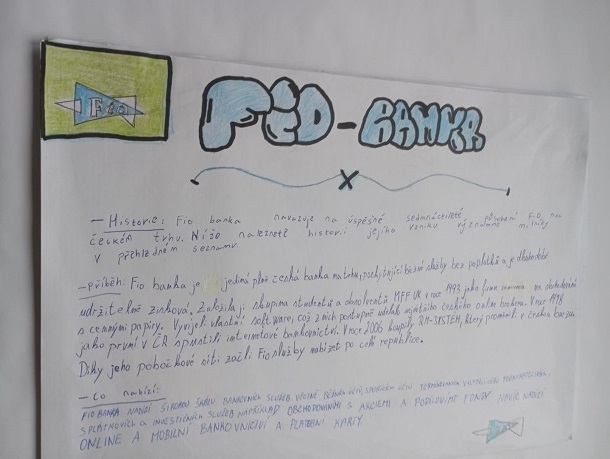 Fio
FiO - BANKA
- Historie: Fio banka navazuje na úspěšné sedmnáctileté působení Fio, na
českém trhu. Níže naleznete historii jejího vzniku významné milníky
v přehledném seznamu.
- příběh: Fio banka je jediná plně česká banka na trhu, poskytující běžné služby bez poplatků a je dlouhodobě
udržitelně zisková. Založila ji skupina studentů a absolventů MFF UK v roce 1993 jako firma na obchodování
s cennými papíry. Vyvíjeli vlastní software, což z nich postupně udělalo největšího českého online brokera. V roce 1998
jako první v ČR spustili internetové bankovnictví. V roce 2006 koupily RM-SYSTÉM, který proměnil v českou burzu
Díky jeho pobočkové síti začli Fio služby nabízet po celé republice.
- Co nabízí:
FIO BANKA NABÍZÍ ŠIROKOU ŠKÁLU BANKOVNÍCH SLUŽEB VČETNĚ BĚŽNÝCH ÚČTŮ,
SPLÁTKOVÝCH A INVESTIČNÍCH SLUŽEB NAPŘÍKLAD OBCHODOVÁNÍM S AKCIEMI A PODÍLOVÝMI FONDY. NAVÍC NABÍZÍ
ONLINE A MOBILNÍ BANKOVNICTVÍ A PLATEBNÍ KARTY